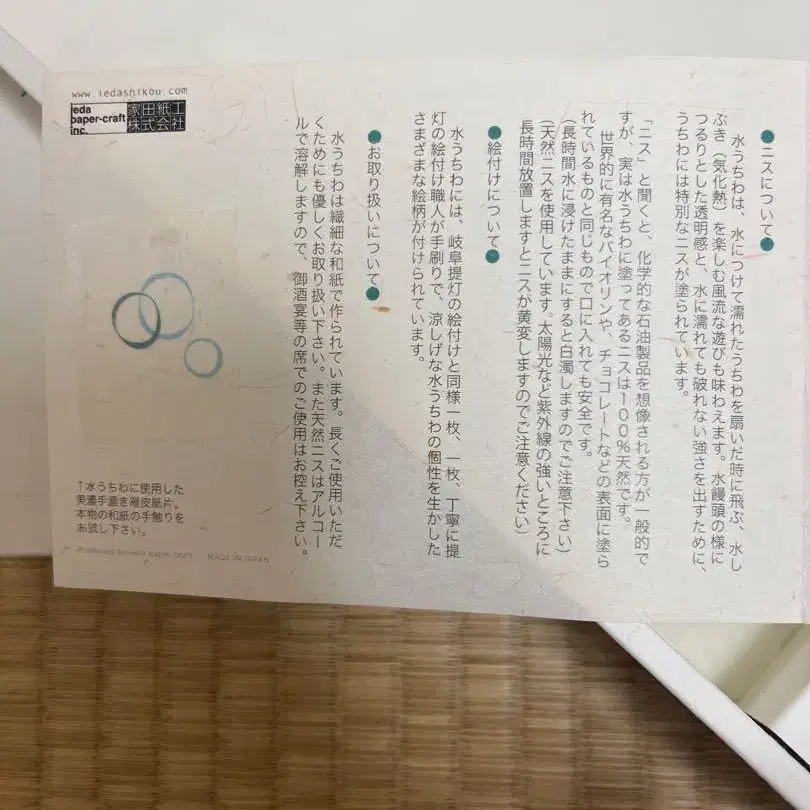 ●ニスについて●
水うちわは、水につけて濡れたうちわを扇いだ時に飛ぶ、水し
ぶき（気化熱）を楽しむ風流な遊びも味わえます。水饅頭の様に
つるりとした透明感と、水に濡れても破れない強さを出すために、
うちわには特別なニスが塗られています。
「ニス」と聞くと、化学的な石油製品を想像される方が一般的で
すが、実は水うちわに塗ってあるニスは１００％天然です。
世界的に有名なバイオリンや、チョコレートなどの表面に塗ら
れているものと同じもので口に入れても安全です。
（長時間水に浸けたままにすると白濁しますのでご注意下さい）
（天然ニスを使用しています。太陽光など紫外線の強いところに
長時間放置しますとニスが黄変しますのでご注意ください）
●絵付けについて●
水うちわには、岐阜提灯の絵付けと同様一枚、一枚、丁寧に提
灯の絵付け職人が手刷りで、涼しげな水うちわの個性を生かした
さまざまな絵柄が付けられています。
●お取り扱いについて●
水うちわは繊細な和紙で作られています。長くご使用いただ
くためにも優しくお取り扱い下さい。また天然ニスはアルコー
ルで溶解しますので、御酒宴等の席でのご使用はお控え下さい。
www.iedashikou.com
ieda
paper-craft
inc.
家田紙工
株式会社
↑水うちわに使用した
美濃手漉き雁皮紙片。
本物の和紙の手触りを
お試し下さい。
Produced by ieda paper-craft MADE IN JAPAN